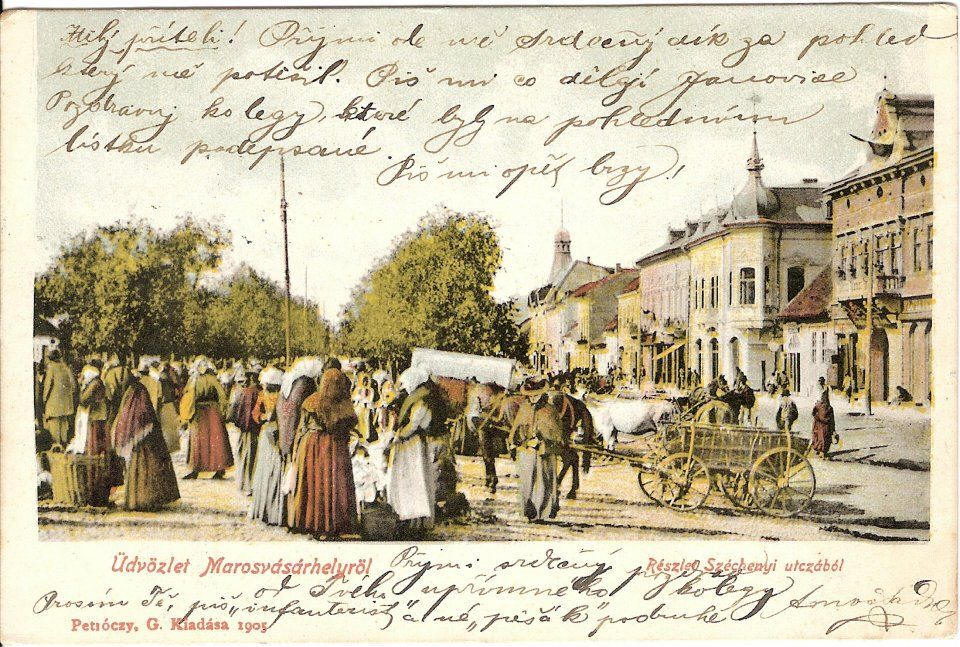 Milý příteli! Přijmi ode mě srdečný dík za pohled
který mě potěšil. Piš mi co dělají Janovice
Pozdravuj kolegy, které byly na pohledním
lístku podepsané. Piš mi opět brzy!
Üdvözlet Marosvásárhelyről
Részlet Széchenyi utczából
Přijmi srdečný pozdrav
od Tvého upřímného kolegy
Prosím Tě, piš „infanterist" a ne „pěšák" podruhé
Petróczy, G. Kiadása 1905